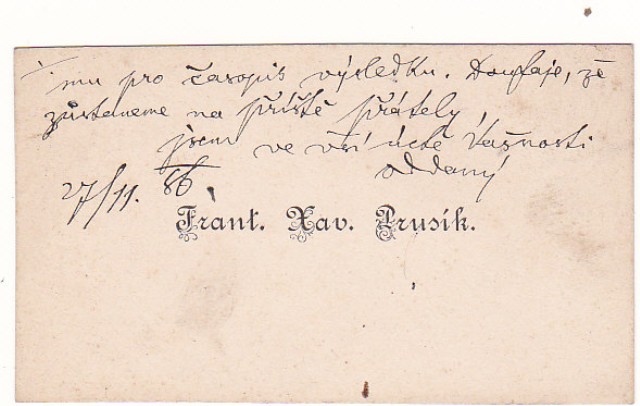 mu pro časopis výsledku. Doufaje, že
zůstaneme na příště přátely,
jsem ve vší úctě Vašnosti
oddaný
27/11. 86.
Frant. Xav. Prusík.